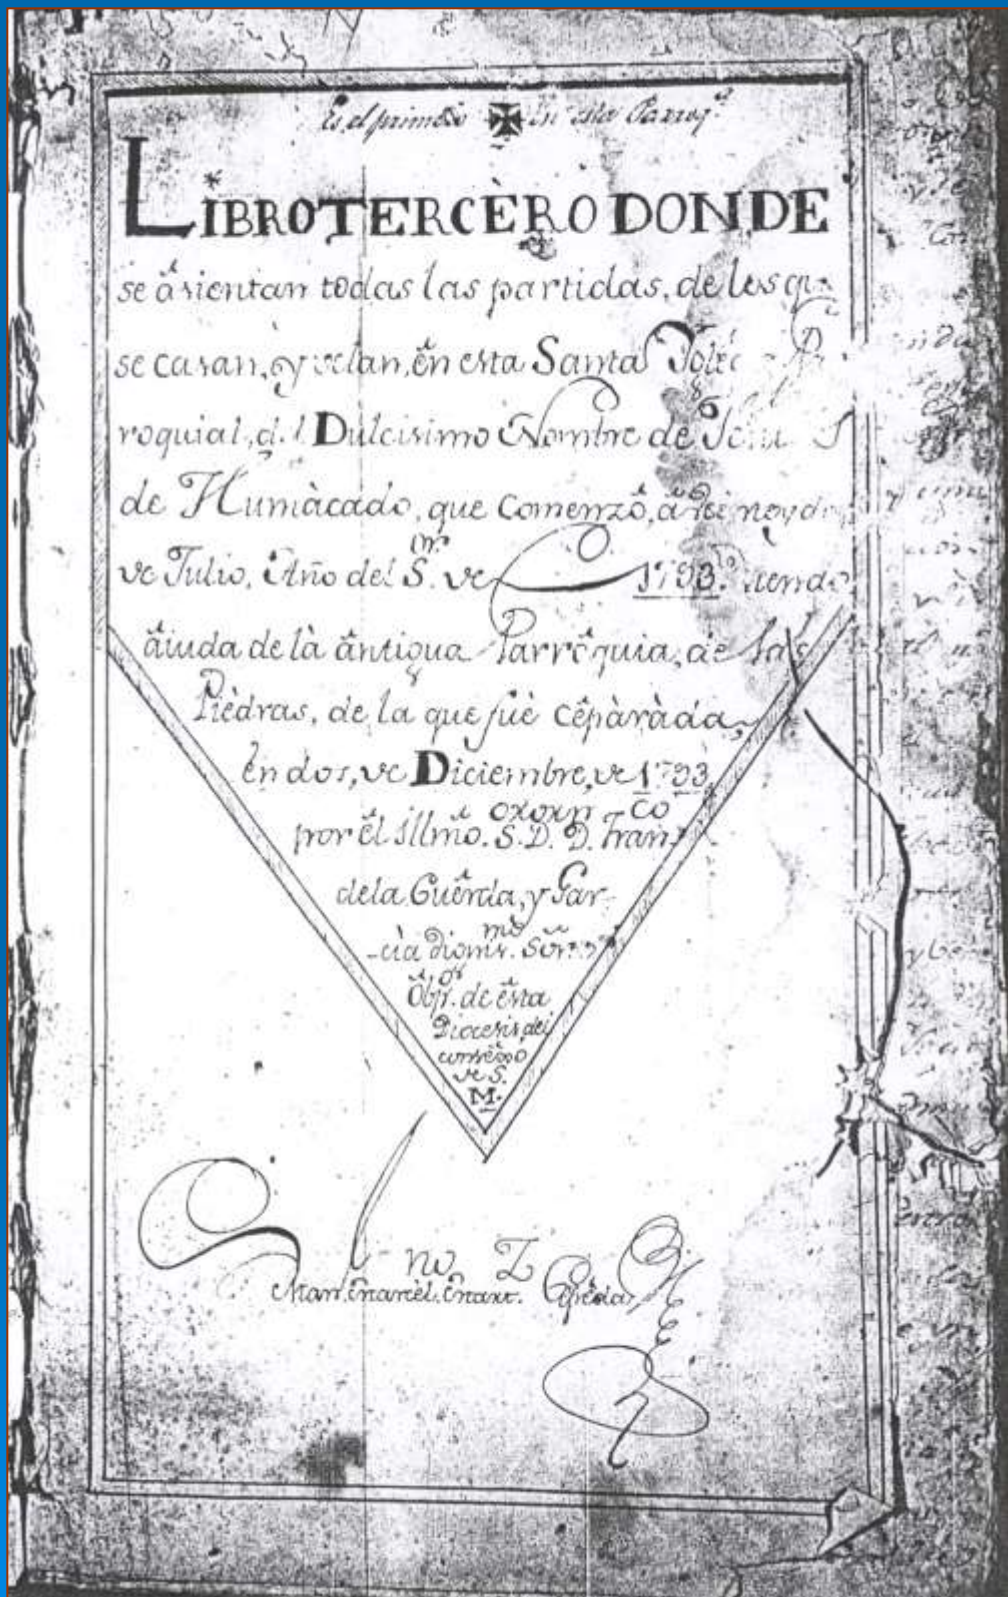 Es el primero en esta Parroq.ª
LIBRO TERCÈRO DONDE
se âsientan todas las partidas, de los qu
se casan, y velan, ên esta Santa
roquial, d.l Dulcisimo Nombre de
de Humàcado, que Comenzô, â
de Julio, Año del S.or de 1793. siendo
âiuda de là ântigua Parrôquia, de las
Pièdras, de la que fuè cêpàràda,
En dos, de Diciembre, de 1793,
por êl illmô. S. D. D. Fran.co
dela Cuêrda, y Gar-
-cia digniss.mo
Ôbp. de êsta
Diocesis, del
consêxo
de S.
M.